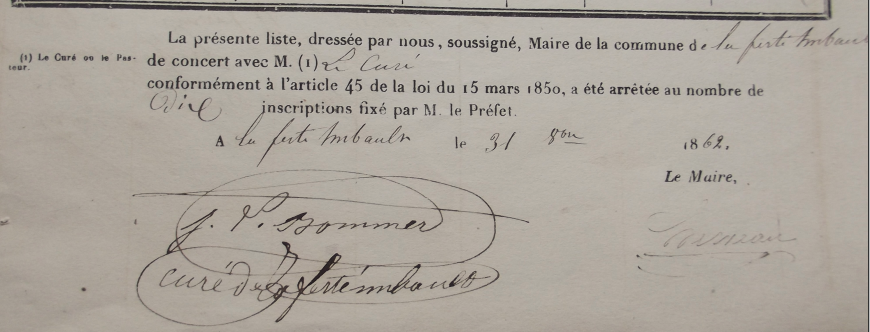 La présente liste, dressée par nous, soussigné, Maire de la commune de la ferté Imbault
(1) Le Curé ou le Pas-
teur.
de concert avec M. (1) Le Curé
conformément à l'article 45 de la loi du 15 mars 1850, a été arrêtée au nombre de
inscriptions fixé par M. le Préfet.
A la ferté Imbault le 31 8bre 1862.
Le Maire,
J. P. Bommer
curé de la fertéimbault